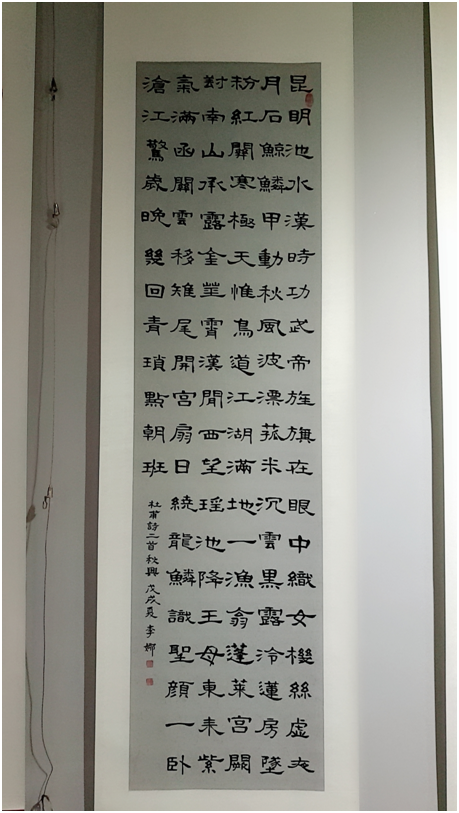 昆明池水漢時功武帝旌旗在眼中織女機絲虛夜
月石鯨鱗甲動秋風波漂菰米沉雲黑露冷蓮房墜
粉紅關寒極天惟鳥道江湖滿地一漁翁蓬萊宮闕
對南山承露金莖霄漢閒西望瑤池降王母東来紫
氣滿函關雲移雉尾開宮扇日繞龍鱗識聖顏一卧
滄江驚歲晚幾回青瑣點朝班
杜甫詩二首秋興 戊戌夏 李娜